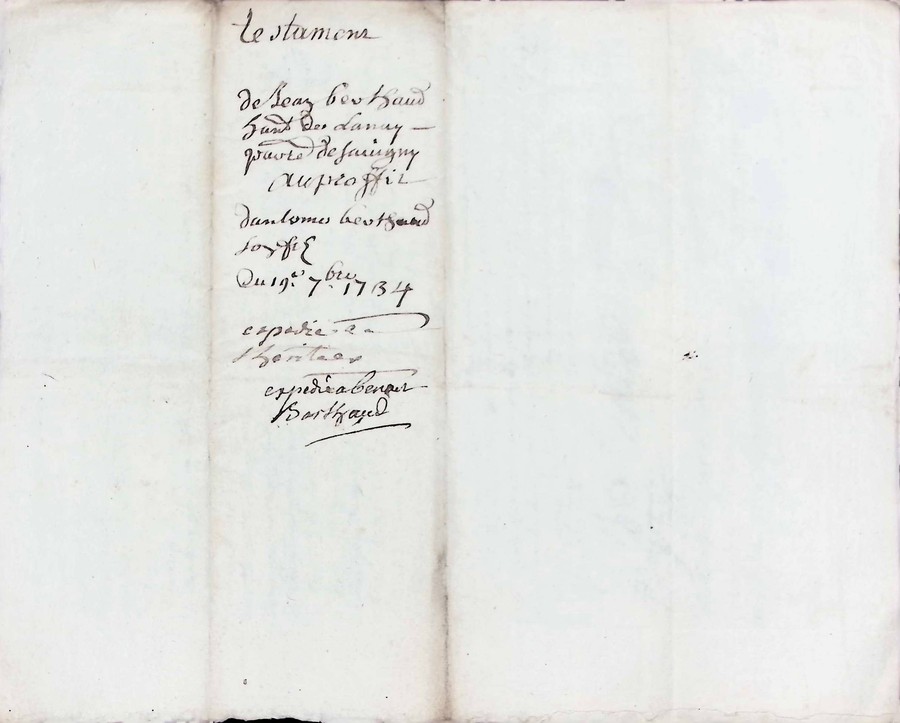 testament
de Jean berthaud
hant des Lanay
parre de Savigny
au proffit
dantome berthaud
son fil
Du 19e 7bre 1734
expedie a
lheritier
expedie a benoit
Berthaud